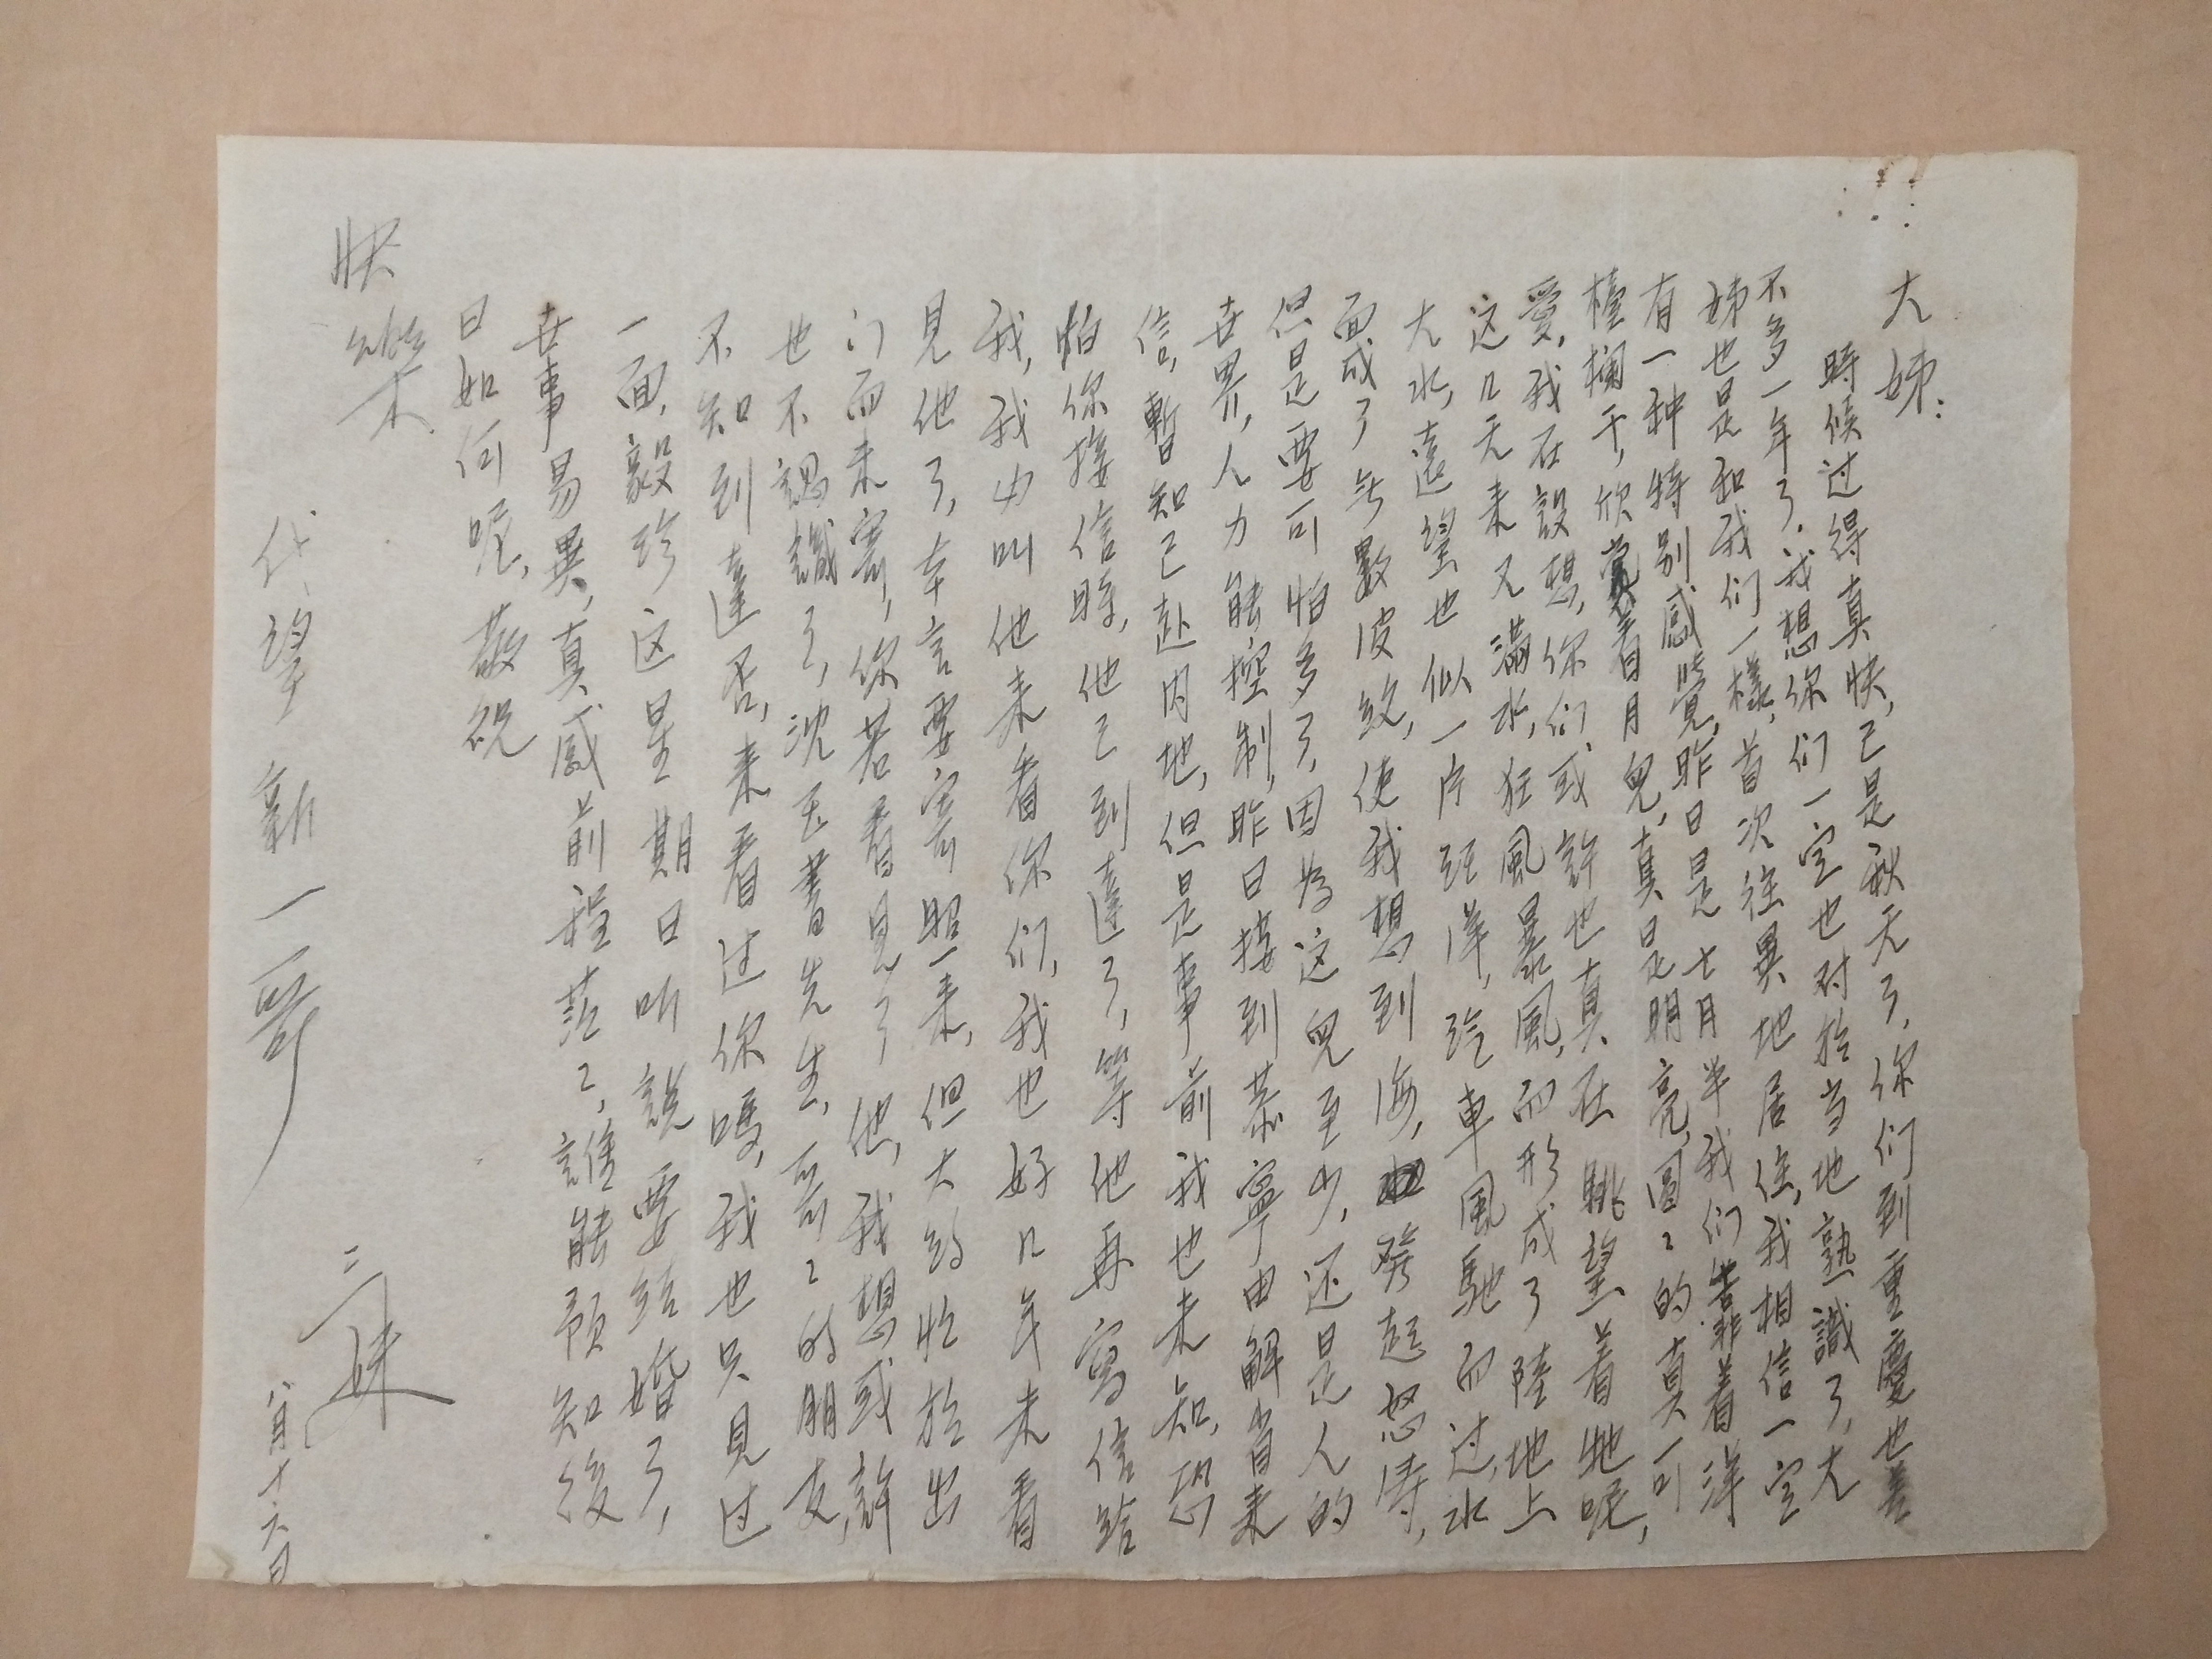 大姊：
時候过得真快，已是秋天了，你们到重慶也差
不多一年了。我想你们一定也对於当地熟識了，大
姊也是和我们一樣，首次往異地居住，我相信一定
有一种特别感覺，昨日是七月半我们靠着洋
檯欄干，欣賞着月兒，真是明亮，圓〻的真可
愛，我在設想，你们或許也真在眺望着牠呢，
这几天来又滿水，狂風暴風，而形成了陸地上
大水，遠望也似一片汪洋，汽車風馳而过，水
面成了無數波紋，使我想到海，發起怒濤，
但是要可怕多了，因为这兒至少，还是人的
世界，人力能控制，昨日接到慕寧由解省来
信，暫知已赴内地，但是事前我也未知，恐
怕你接信時，他已到達了，等他再寫信给
我，我叫他来看你们，我也好几年未看
見他了，幸言要寄照一来，但大约忙於出
门而未寄，你若看見了他，我想或許
也不認識了，沈玉書先生，哥〻的朋友，
不知到達否，来看过你嗎，我也只見过
一面，毅珍这星期日听説要结婚了，
世事易異，真感前程茫〻，誰能預知後
日如何呢，敬祝
快樂
三妹
八月十六日
代望新一哥